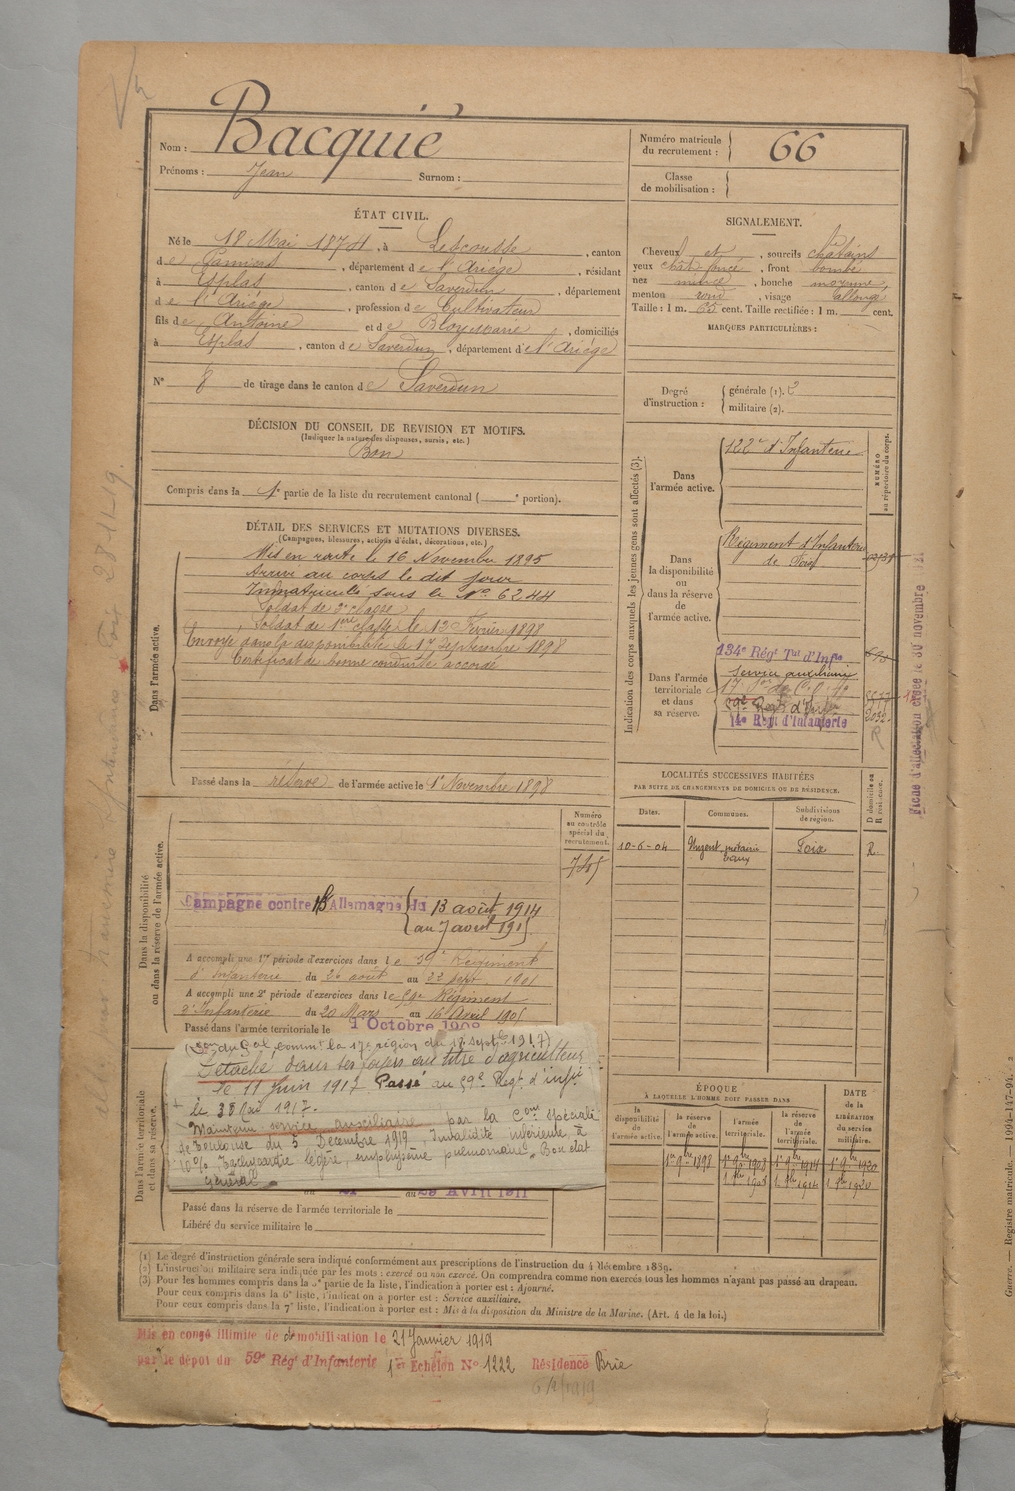 Nom : Bacquié
Prénoms : Jean Surnom :
Numéro matricule du recrutement : 66
Classe de mobilisation :
ÉTAT CIVIL.
Né le 18 Mai 1874, à Lescousse, canton
de Pamiers, département de l'Ariège, résidant
à Esplas, canton de Saverdun, département
de l'Ariège, profession de Cultivateur
fils de Antoine et de, domiciliés
à Esplas, canton de Saverdun, département de l'Ariège
N° 8 de tirage dans le canton de Saverdun
SIGNALEMENT.
Cheveux et, sourcils châtains
yeux chât foncé, front bombé
nez mince, bouche moyenne,
menton rond, visage allongé
Taille : 1 m. 65 cent. Taille rectifiée : 1 m. cent.
MARQUES PARTICULIÈRES :
Degré d'instruction : générale (1). 2
militaire (2).
DÉCISION DU CONSEIL DE REVISION ET MOTIFS.
(Indiquer la nature des dispenses, sursis, etc.)
Bon
Compris dans la 1e partie de la liste du recrutement cantonal ( e portion).
DÉTAIL DES SERVICES ET MUTATIONS DIVERSES.
(Campagnes, blessures, actions d'éclat, décorations, etc.)
Dans l'armée active.
Mis en route le 16 Novembre 1895
Arrivé au corps le dit jour
Immatriculé sous le N° 6244
Soldat de 2e classe
Soldat de 1ère classe le 13 Février 1898
Envoyé dans la disponibilité le 17 Septembre 1898
Certificat de bonne conduite accordé
Passé dans la réserve de l'armée active le 1er Novembre 1898
Indication des corps auxquels les jeunes gens sont affectés (3).
NUMÉRO au répertoire du corps.
Dans l'armée active.
122e d'Infanterie
Dans la disponibilité ou dans la réserve de l'armée active.
Régiment d'Infanterie
de Foix
Dans l'armée territoriale et dans sa réserve.
134e Régt Tal d'Infie
Service auxiliaire
59e Regt d'Infie
14e Regt d'Infanterie
2032
LOCALITÉS SUCCESSIVES HABITÉES
PAR SUITE DE CHANGEMENTS DE DOMICILE OU DE RÉSIDENCE.
Dates. Communes. Subdivisions de région. D domicile ou R résidence.
10-6-04 Foix R.
Dans la disponibilité ou dans la réserve de l'armée active.
Numéro au contrôle spécial du recrutement.
Campagne contre l'Allemagne du 13 août 1914
au 7 août 191
A accompli une 1re période d'exercices dans le 59e Régiment
d'Infanterie du 26 août au 22 sept. 1901
A accompli une 2e période d'exercices dans le 59e Régiment
d'Infanterie du 20 Mars au 16 Avril 1905
Passé dans l'armée territoriale le 1 Octobre 1908
Dans l'armée territoriale et dans sa réserve.
(Don du Gal commt la 17e région du 17 Septbre 1917)
Détaché dans ses foyers au titre d'agriculteur
le 11 Juin 1917. Passé au 59e Regt d'infie
le
Maintenu service auxiliaire par la Con spéciale
de Toulouse du 5 Décembre 1917. Invalidité inférieure à
10% Tachycardie légère, emphysème pulmonaire, Bon état
général
au 29 Avril 1911
Passé dans la réserve de l'armée territoriale le
Libéré du service militaire le
ÉPOQUE
À LAQUELLE L'HOMME DOIT PASSER DANS
la disponibilité de l'armée active. la réserve de l'armée active. l'armée territoriale. la réserve de l'armée territoriale. DATE de la LIBÉRATION du service militaire.
1er 9bre 1898 1er 9bre 1908 1er 9bre 1914 1er 9bre 1920
(1) Le degré d'instruction générale sera indiqué conformément aux prescriptions de l'instruction du 4 décembre 1889.
(2) L'instruction militaire sera indiquée par les mots : exercé ou non exercé. On comprendra comme non exercés tous les hommes n'ayant pas passé au drapeau.
(3) Pour les hommes compris dans la 5e partie de la liste, l'indication à porter est : Ajourné.
Pour ceux compris dans la 6e liste, l'indication à porter est : Service auxiliaire.
Pour ceux compris dans la 7e liste, l'indication à porter est : Mis à la disposition du Ministre de la Marine. (Art. 4 de la loi.)
Mis en congé illimité de démobilisation le 21 Janvier 1919
par le dépôt du 59e Régt d'Infanterie 1er Echelon N° 1222 Résidence Brie
Guerre. — Registre matricule. — 1094-147-94.